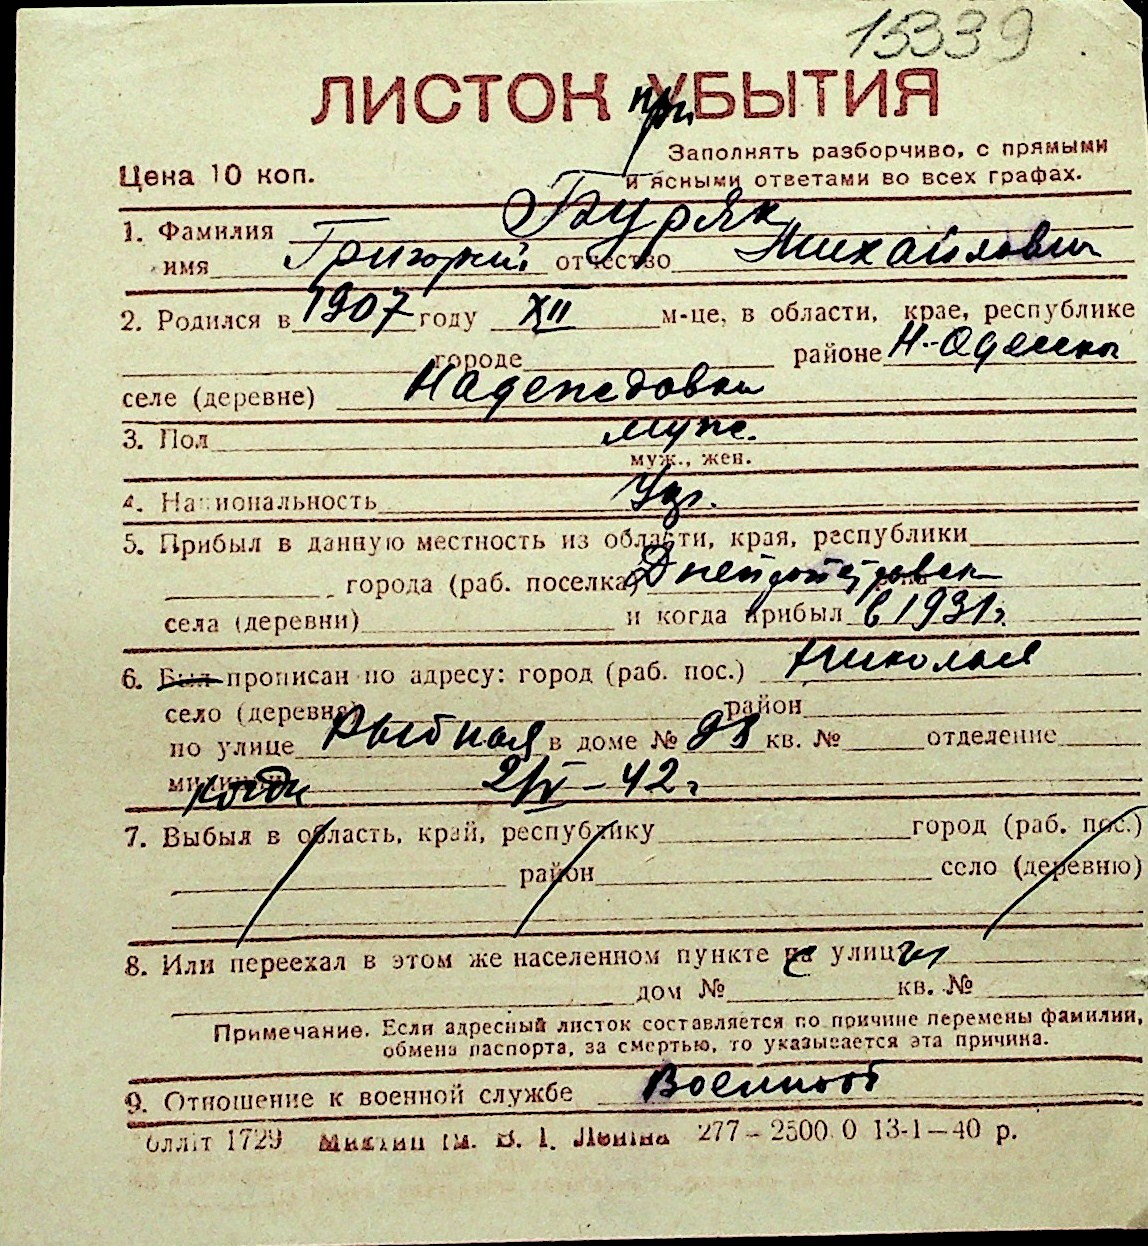 15339
ЛИСТОК УБЫТИЯ
при
Цена 10 коп.
Заполнять разборчиво, с прямыми
и ясными ответами во всех графах.
1. Фамилия Буряк
имя Григорий отчество Михайлович
2. Родился в 1907 году XII м-це, в области, крае, республике
городе районе Н-Одесский
селе (деревне) Надеждовка
3. Пол муж.
муж., жен.
4. Национальность Укр.
5. Прибыл в данную местность из области, края, республики
города (раб. поселка) Днепропетровск
села (деревни) и когда прибыл в 1931 г.
6. Был прописан по адресу: город (раб. пос.) Николаев
село (деревня) район
по улице Рыбная в доме № 93 кв. № отделение
милиции когда 2/IV-42 г
7. Выбыл в область, край, республику город (раб. пос.)
район село (деревню)
8. Или переехал в этом же населенном пункте с улицы
дом № кв. №
Примечание. Если адресный листок составляется по причине перемены фамилии,
обмена паспорта, за смертью, то указывается эта причина.
9. Отношение к военной службе Военнооб
1729 В. І. Леніна 277-2500.0 13-1-40 р.